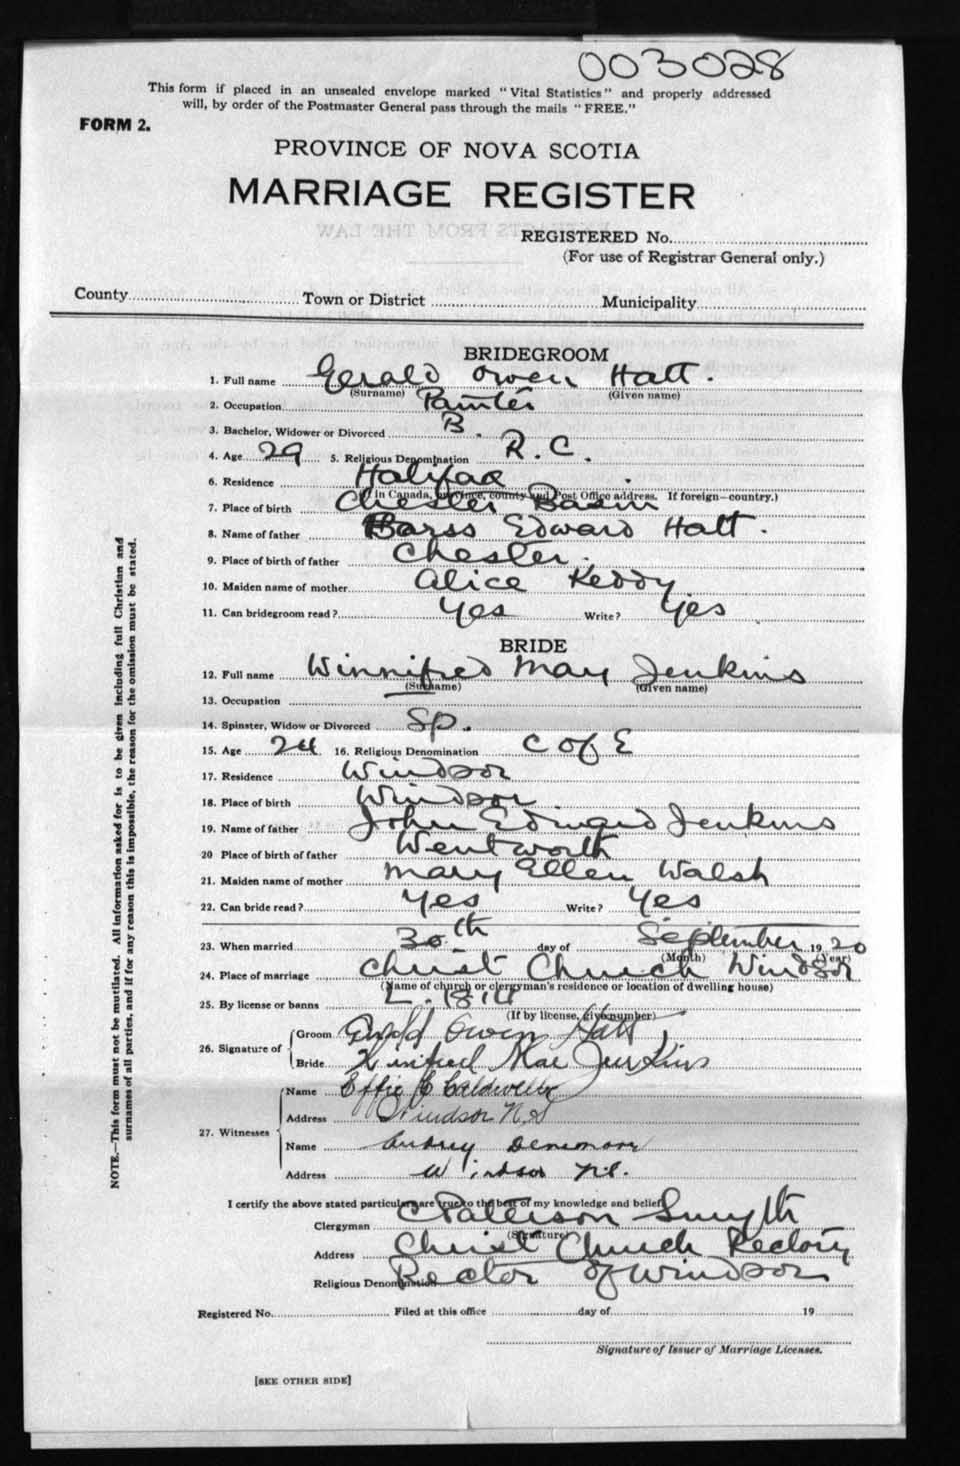 003028
This form if placed in an unsealed envelope marked "Vital Statistics" and properly addressed
will, by order of the Postmaster General pass through the mails "FREE."
FORM 2.
PROVINCE OF NOVA SCOTIA
MARRIAGE REGISTER
EXTRACTS FROM THE LAW
REGISTERED No.
(For use of Registrar General only.)
County Town or District Municipality
BRIDEGROOM
1. Full name Gerald Owen Hatt.
(Surname) (Given name)
2. Occupation Painter
3. Bachelor, Widower or Divorced B.
4. Age 29 5. Religious Denomination R. C.
6. Residence Halifax
(If in Canada, province, county and Post Office address. If foreign—country.)
7. Place of birth Chester Basin
8. Name of father Barss Edward Hatt.
9. Place of birth of father Chester.
10. Maiden name of mother Alice Keddy
11. Can bridegroom read? Yes Write? Yes
BRIDE
12. Full name Winnifred May Jenkins
(Surname) (Given name)
13. Occupation
14. Spinster, Widow or Divorced Sp.
15. Age 24 16. Religious Denomination C of E
17. Residence Windsor
18. Place of birth Windsor
19. Name of father John Edward Jenkins
20 Place of birth of father Wentworth
21. Maiden name of mother Mary Ellen Walsh
22. Can bride read? Yes Write? Yes
23. When married 30th day of September 1920
(Month) (Year)
24. Place of marriage Christ Church Windsor
(Name of church or clergyman's residence or location of dwelling house)
25. By license or banns L.
(If by license, give number)
26. Signature of Groom Gerald Owen Hatt
Bride Winifred Mae Jenkins
27. Witnesses Name Effie Caldwell
Address Windsor N.S
Name Audrey
Address Windsor N.S.
I certify the above stated particulars are true to the best of my knowledge and belief.
Clergyman C Patterson Smyth
(Signature)
Address Christ Church Rectory
Religious Denomination Rector of Windsor
Registered No. Filed at this office day of 19
Signature of Issuer of Marriage Licenses.
[SEE OTHER SIDE]
NOTE.—This form must not be mutilated. All information asked for is to be given including full Christian and
surnames of all parties, and if for any reason this is impossible, the reason for the omission must be stated.